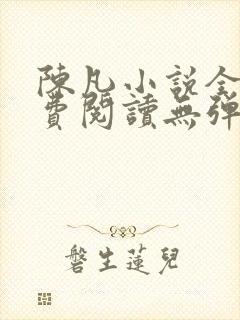 陳凡小說全
費閱讀無彈
磐生蓮兒